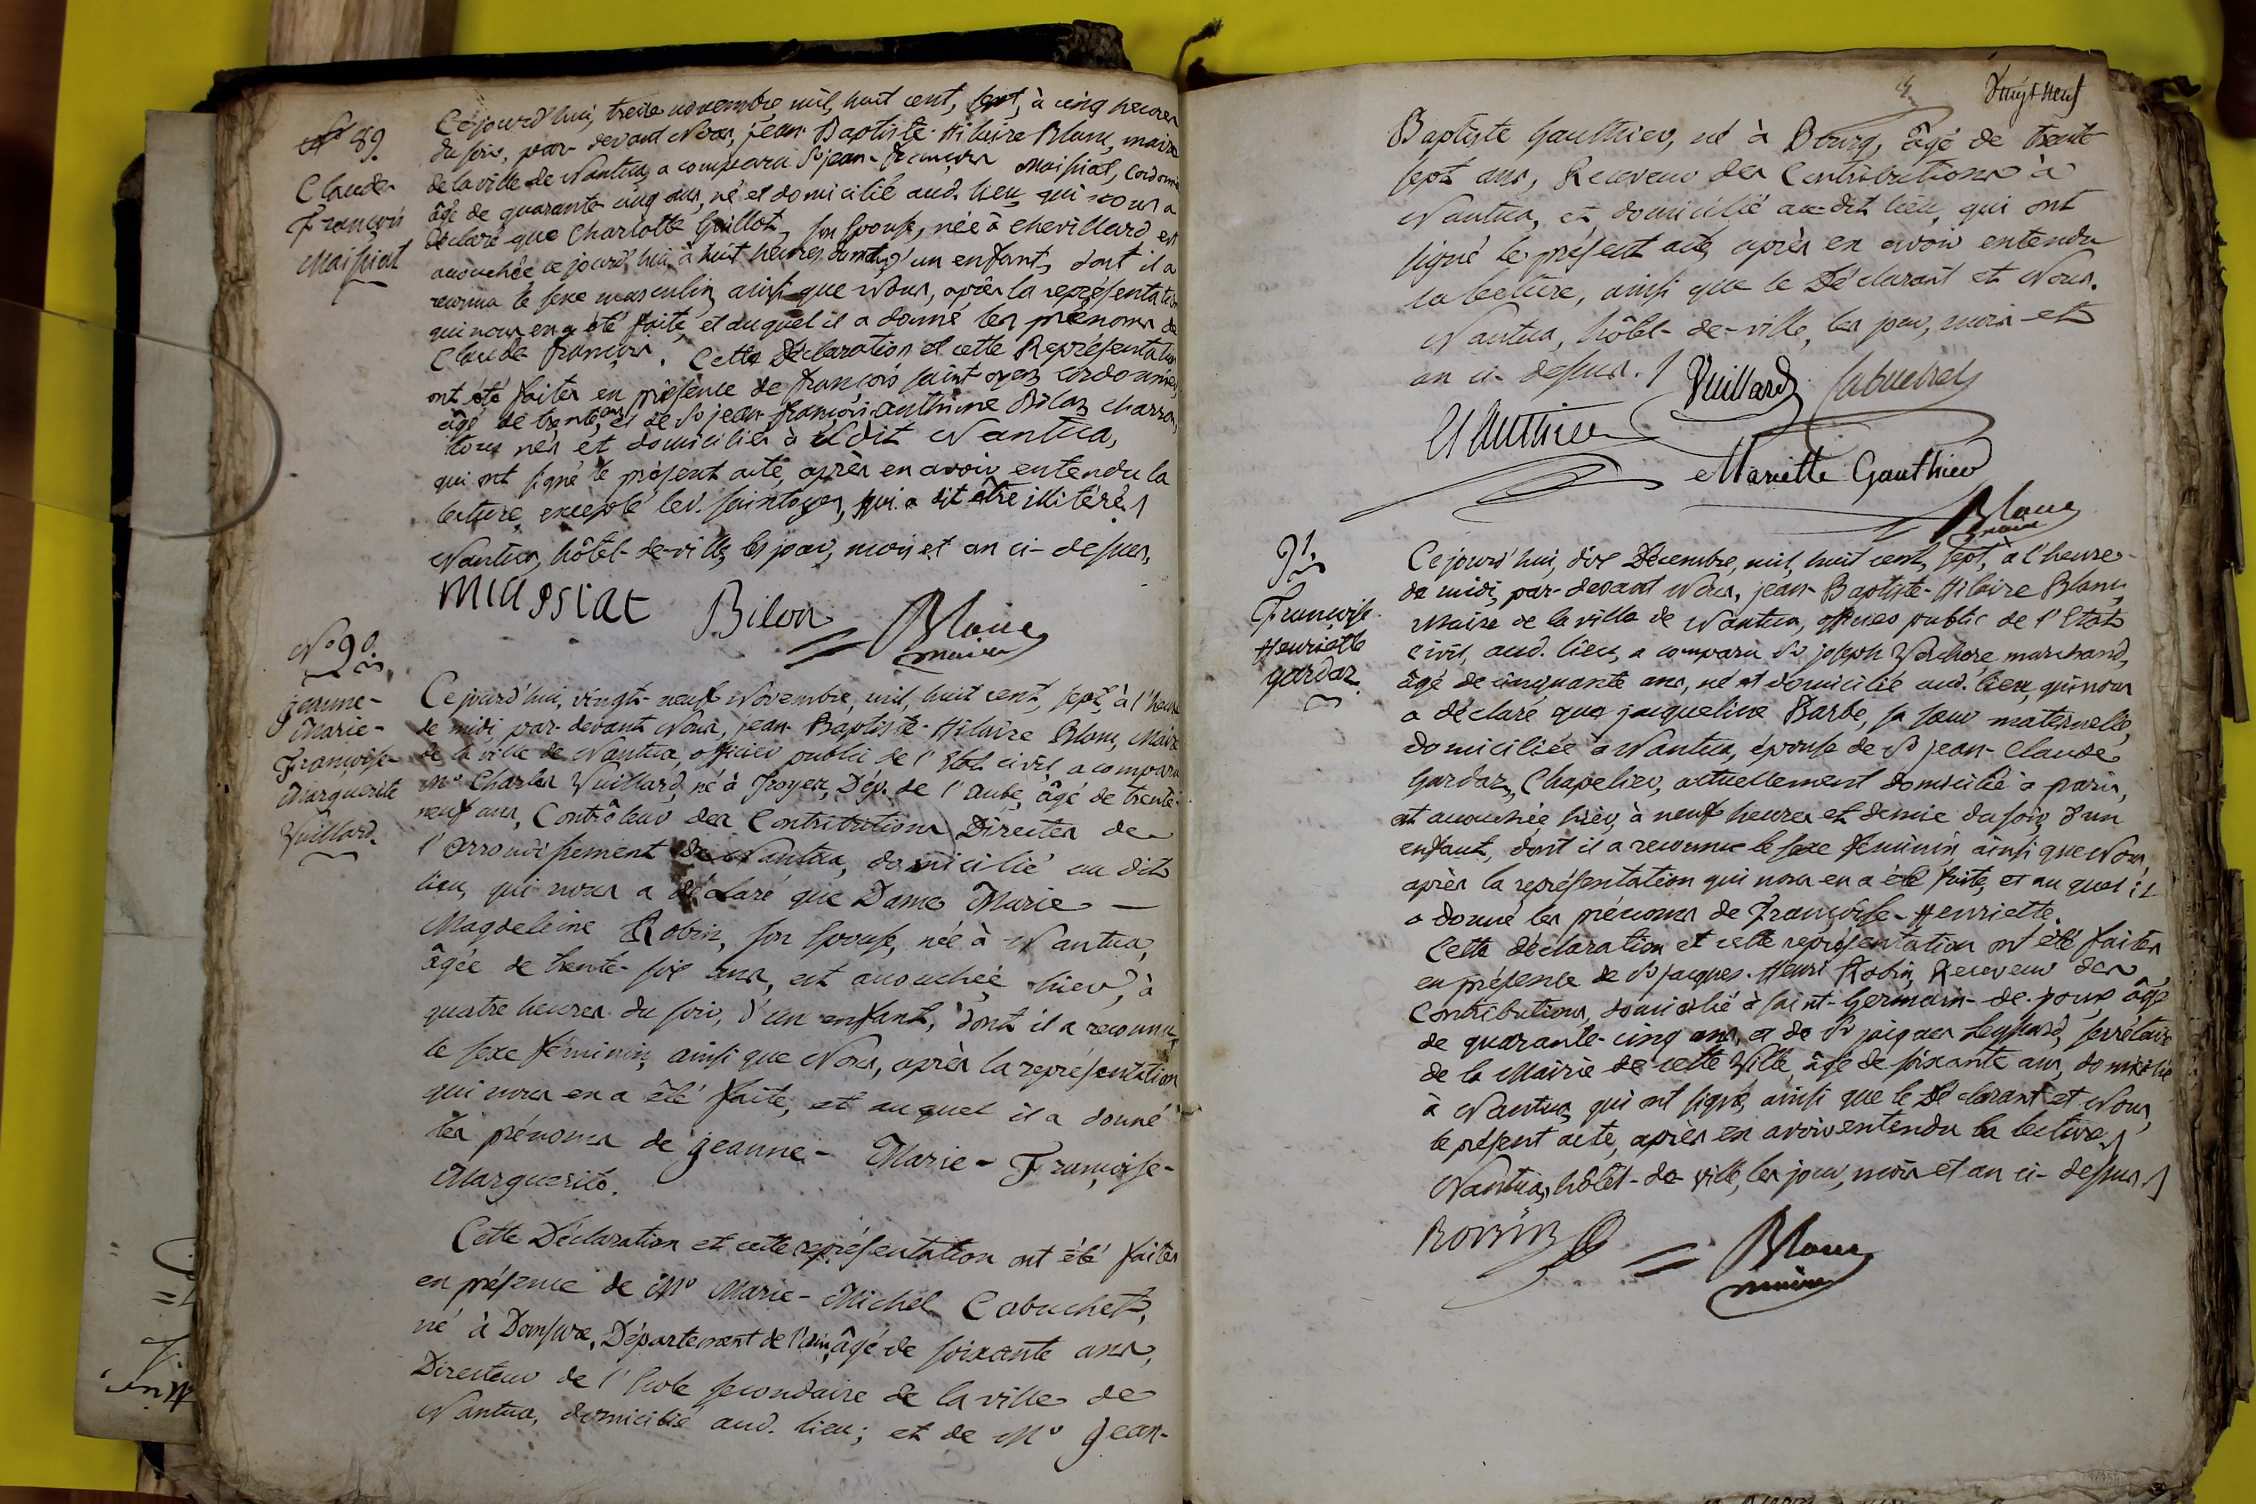 N° 89.
Claude
François
Maissiat
Cejourd'hui, treize novembre, mil, huit cent, sept, à cinq heures
du soir, par-devant Nous, jean-Baptiste-Hilaire Blanc, maire
de la ville de Nantua, a comparu Sr jean-françois Maissiat, cordonnier
âgé de quarante cinq ans, né et domicilié aud. lieu, qui nous a
déclaré que Charlotte Guillot, son Epouse, née à Chevillard est
accouchée ce jourd'hui, à huit heures d'un enfant, dont il a
reconnu le sexe masculin, ainsi que Nous, après la représentation
qui nous en a été faite, et auquel il a donné les prénoms de
Claude françois. Cette Déclaration et cette Représentation
ont été faites en présence de françois saint oyen cordonnier,
âgé de trente ans, et de Sr jean-françois-anthime Bilon charron,
tous nés et domiciliés à Nantua,
qui ont signé le présent acte, après en avoir entendu la
lecture, excepté led. saintoyen, qui a dit être illitéré.
Nantua, hôtel-de-ville, les jour, mois et an ci-dessus.
Maissiat Bilon Blanc
maire
N° 90.
jeanne-
Marie-
Françoise-
Marguerite
Vuillard.
Cejourd'hui, vingt-neuf Novembre, mil, huit cent, sept, à l'heure
de midi, par-devant Nous, jean-Baptiste-Hilaire Blanc, Maire
de la ville de Nantua, officier public de l'Etat civil, a comparu
Mr Charles Vuillard, né à Troyes, Dép. de l'aube, âgé de trente-
neuf ans, Contrôleur des Contributions Directes de
l'arrondissement de Nantua, domicilié au dit
lieu, qui nous a déclaré que Dame Marie-
Magdeleine Robin, son Epouse, née à Nantua,
âgée de trente-six ans, est accouchée hier, à
quatre heures du soir, d'un enfant, dont il a reconnu
le sexe féminin, ainsi que Nous, après la représentation
qui nous en a été faite, et auquel il a donné
les prénoms de jeanne-Marie-Françoise-
Marguerite.
Cette Déclaration et cette représentation ont été faites
en présence de Mr Marie-Michel Cabuchet,
né à Domsure, Département de l'ain, âgé de soixante ans,
Directeur de l'Ecole secondaire de la ville de
Nantua, domicilié aud. lieu; et de Mr Jean-
Vingt neuf
Baptiste Gauthier, né à Bourg, âgé de trente
sept ans, Receveur des Contributions à
Nantua, et domicilié au dit lieu, qui ont
signé le présent acte, après en avoir entendu
la lecture, ainsi que le Déclarant et Nous.
Nantua, hôtel-de-ville, les jour, mois et
an ci-dessus.
Vuillard Cabuchet
Gauthier
Mariette Gauthier
Blanc
maire
91.
Françoise-
Henriette
gardaz
Cejourd'hui, dix Décembre, mil, huit cent, sept, à l'heure
de midi, par-devant Nous, jean-Baptiste-Hilaire Blanc,
Maire de la ville de Nantua, officier public de l'Etat
civil, aud. lieu, a comparu Sr joseph Verchere, marchand,
âgé de cinquante ans, né et domicilié aud. lieu, qui nous
a déclaré que jacqueline Barbe, sa sœur maternelle,
domiciliée à Nantua, épouse de Sr jean-Claude
Gardaz, Chapelier, actuellement domicilié à paris,
est accouchée hier, à neuf heures et demie du soir, d'un
enfant, dont il a reconnu le sexe féminin, ainsi que Nous,
après la représentation qui nous en a été faite, et au quel il
a donné les prénoms de Françoise-Henriette.
Cette déclaration et cette représentation ont été faites
en présence de Sr jacques-Henri Robin, Receveur des
Contributions, domicilié à saint-Germain-de-joux, âgé
de quarante-cinq ans, et de Sr jacques secrétaire
de la Mairie de cette Ville, âgé de soixante ans, domicilié
à Nantua, qui ont signé, ainsi que le Déclarant et Nous,
le présent acte, après en avoir entendu la lecture.
Nantua, hôtel-de-ville, les jour, mois et an ci-dessus.
ROBIN Blanc
maire